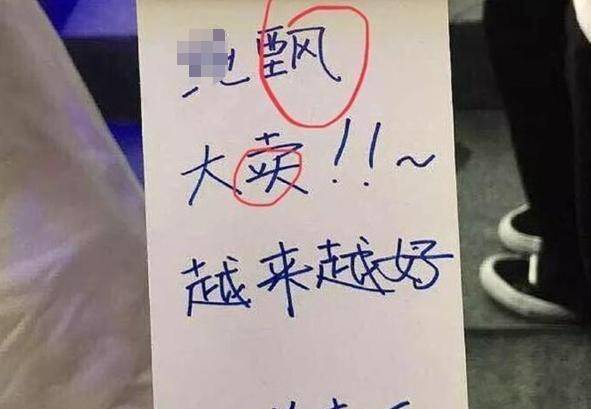 飘
大卖!!~
越来越好